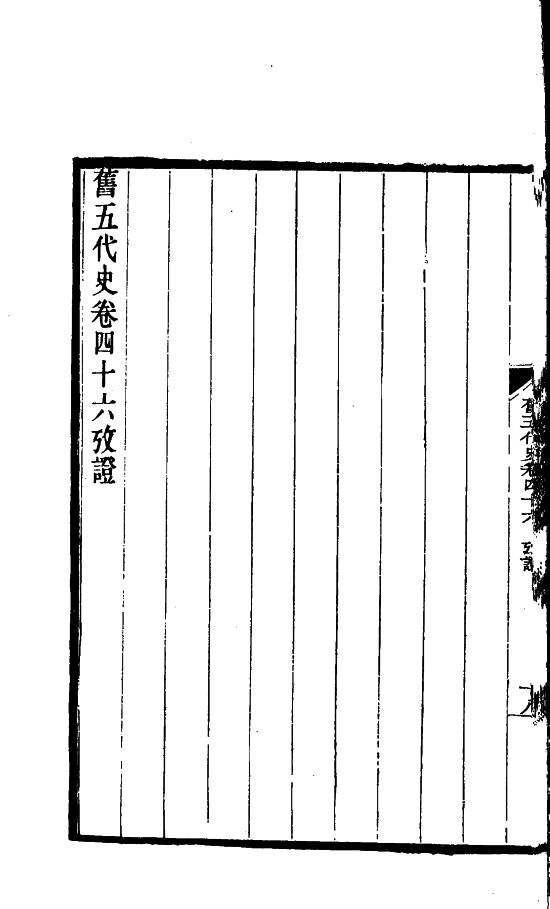 舊五代史卷四十六 攷證
舊五代史卷四十六攷證